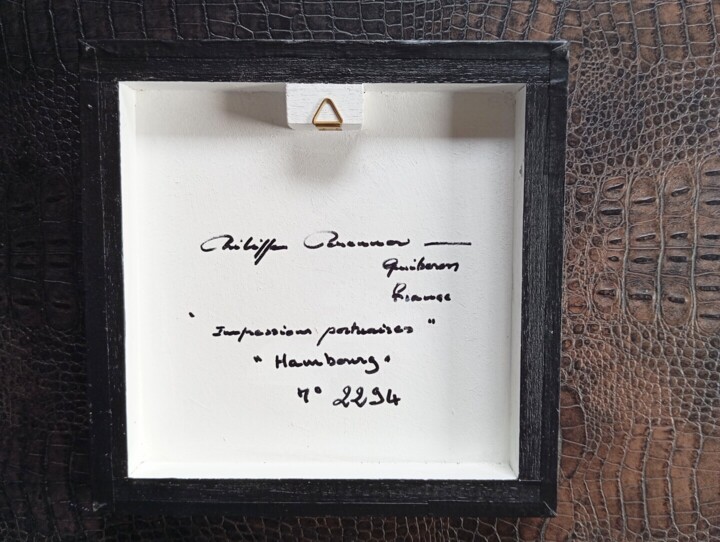 Philippe
Quiberon
France
"Impressions portuaires"
"Hambourg"
N° 2294